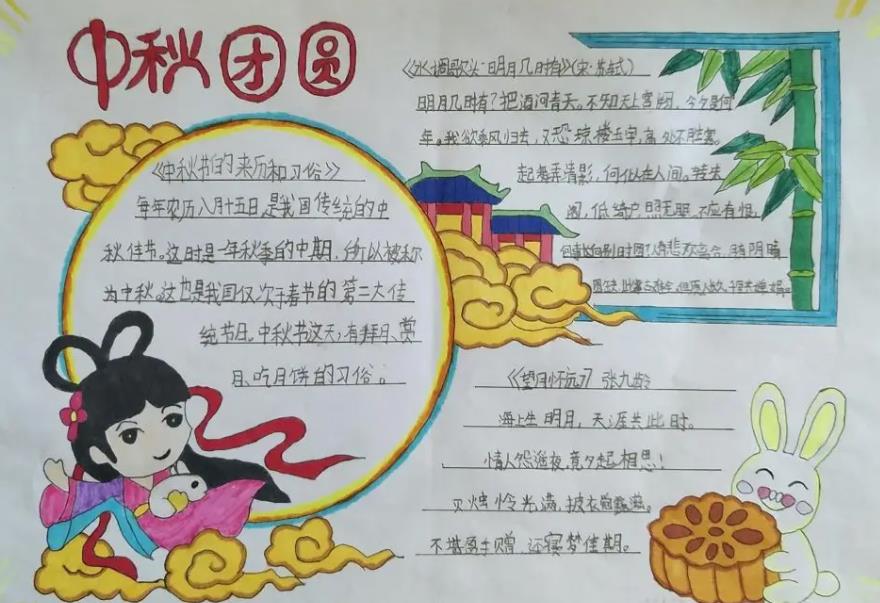 中秋团圆
《中秋节的来历和习俗》
每年农历八月十五日,是我国传统的中
秋佳节。这时是一年秋季的中期,所以被称
为中秋。这也是我国仅次于春节的第二大传
统节日。中秋节这天,有拜月、赏
月、吃月饼的习俗。
《水调歌头·明月几时有》(宋·苏轼)
明月几时有?把酒问青天。不知天上宫阙,今夕是何
年。我欲乘风归去,又恐琼楼玉宇,高处不胜寒。
起舞弄清影,何似在人间。转朱
阁,低绮户,照无眠。不应有恨,
何事长向别时圆?人有悲欢离合,月有阴晴
圆缺,此事古难全。但愿人长久,千里共婵娟。
《望月怀远》 张九龄
海上生明月,天涯共此时。
情人怨遥夜,竟夕起相思!
灭烛怜光满,披衣觉露滋。
不堪盈手赠,还寝梦佳期。